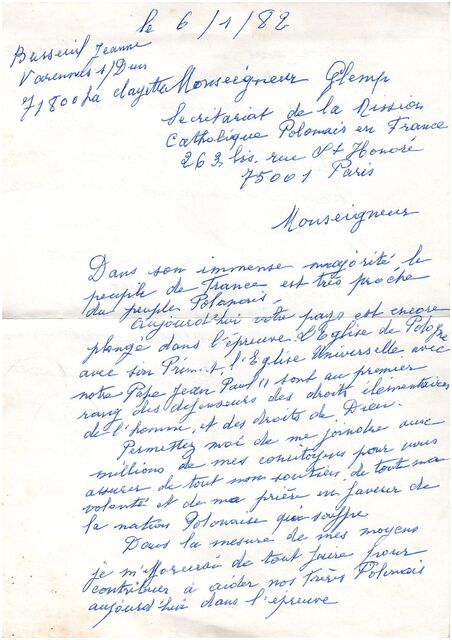 le 6/1/82
Busseuil Jeanne
Varennes s/Dun
71800 La Clayette
Monseigneur Glemp
Secrétariat de la Mission
Catholique Polonais en France
263 bis, rue St Honoré
75001 Paris
Monseigneur
Dans son immense majorité le
peuple de France est très proche
du peuple Polonais.
Aujourd'hui votre pays est encore
plongé dans l'épreuve. L'Eglise de Pologne
avec son Primat, l'Eglise Universelle avec
notre Pape Jean Paul II sont au premier
rang des défenseurs des droits élémentaires
de l'homme, et des droits de Dieu.
Permettez moi de me joindre aux
millions de mes concitoyens pour vous
assurer de tout mon soutien, de toute ma
volonté et de ma prière en faveur de
la nation Polonaise qui souffre
Dans la mesure de mes moyens
je m'efforcerai de tout faire pour
contribuer à aider nos frères Polonais
aujourd'hui dans l'épreuve